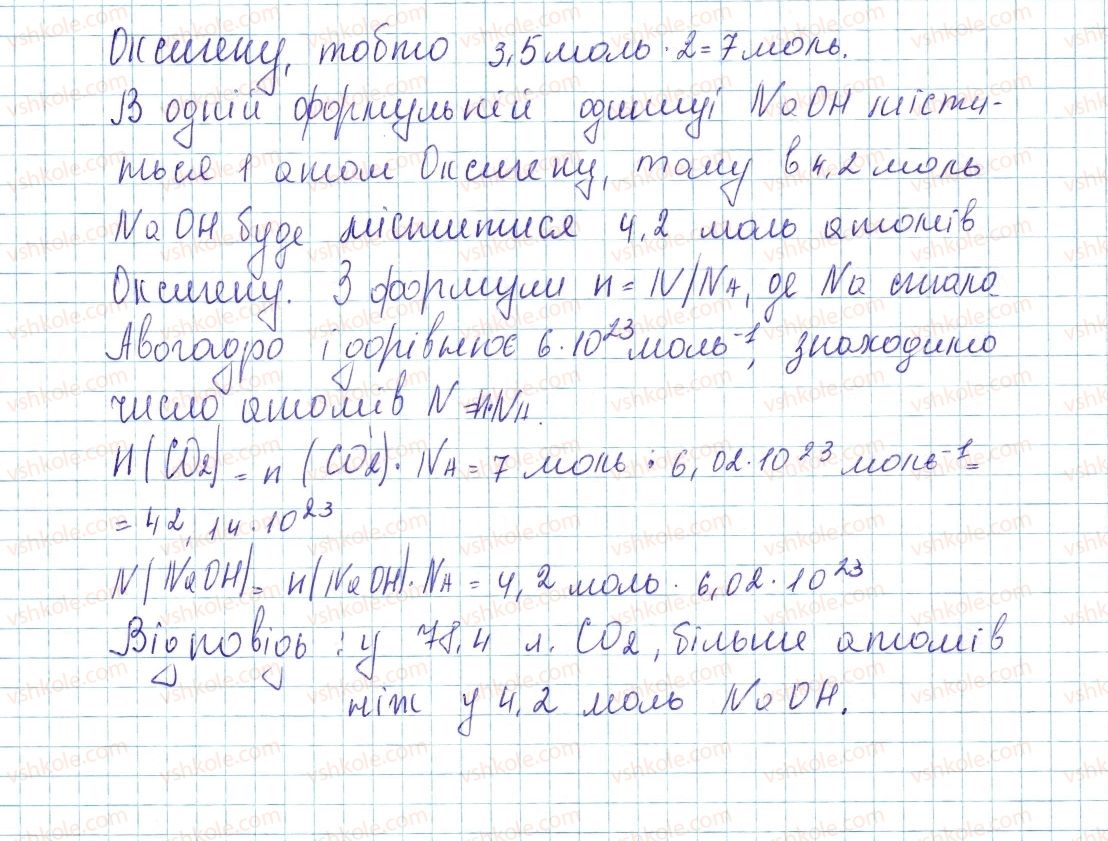 Оксигену, тобто 3,5 моль · 2 = 7 моль.
В одній формульній одиниці NaOH місти-
ться 1 атом Оксигену, тому в 4,2 моль
NaOH буде міститися 4,2 моль атомів
Оксигену. З формули n = N/NA, де Na стала
Авогадро і дорівнює 6·10²³ моль⁻¹, знаходимо
число атомів N = n·NA.
N(CO2) = n (CO2)· NA = 7 моль · 6,02·10²³ моль⁻¹ =
= 42,14·10²³
N(NaOH) = n(NaOH)·NA = 4,2 моль · 6,02·10²³
Відповідь: у 78,4 л. CO2, більше атомів
ніж у 4,2 моль NaOH.